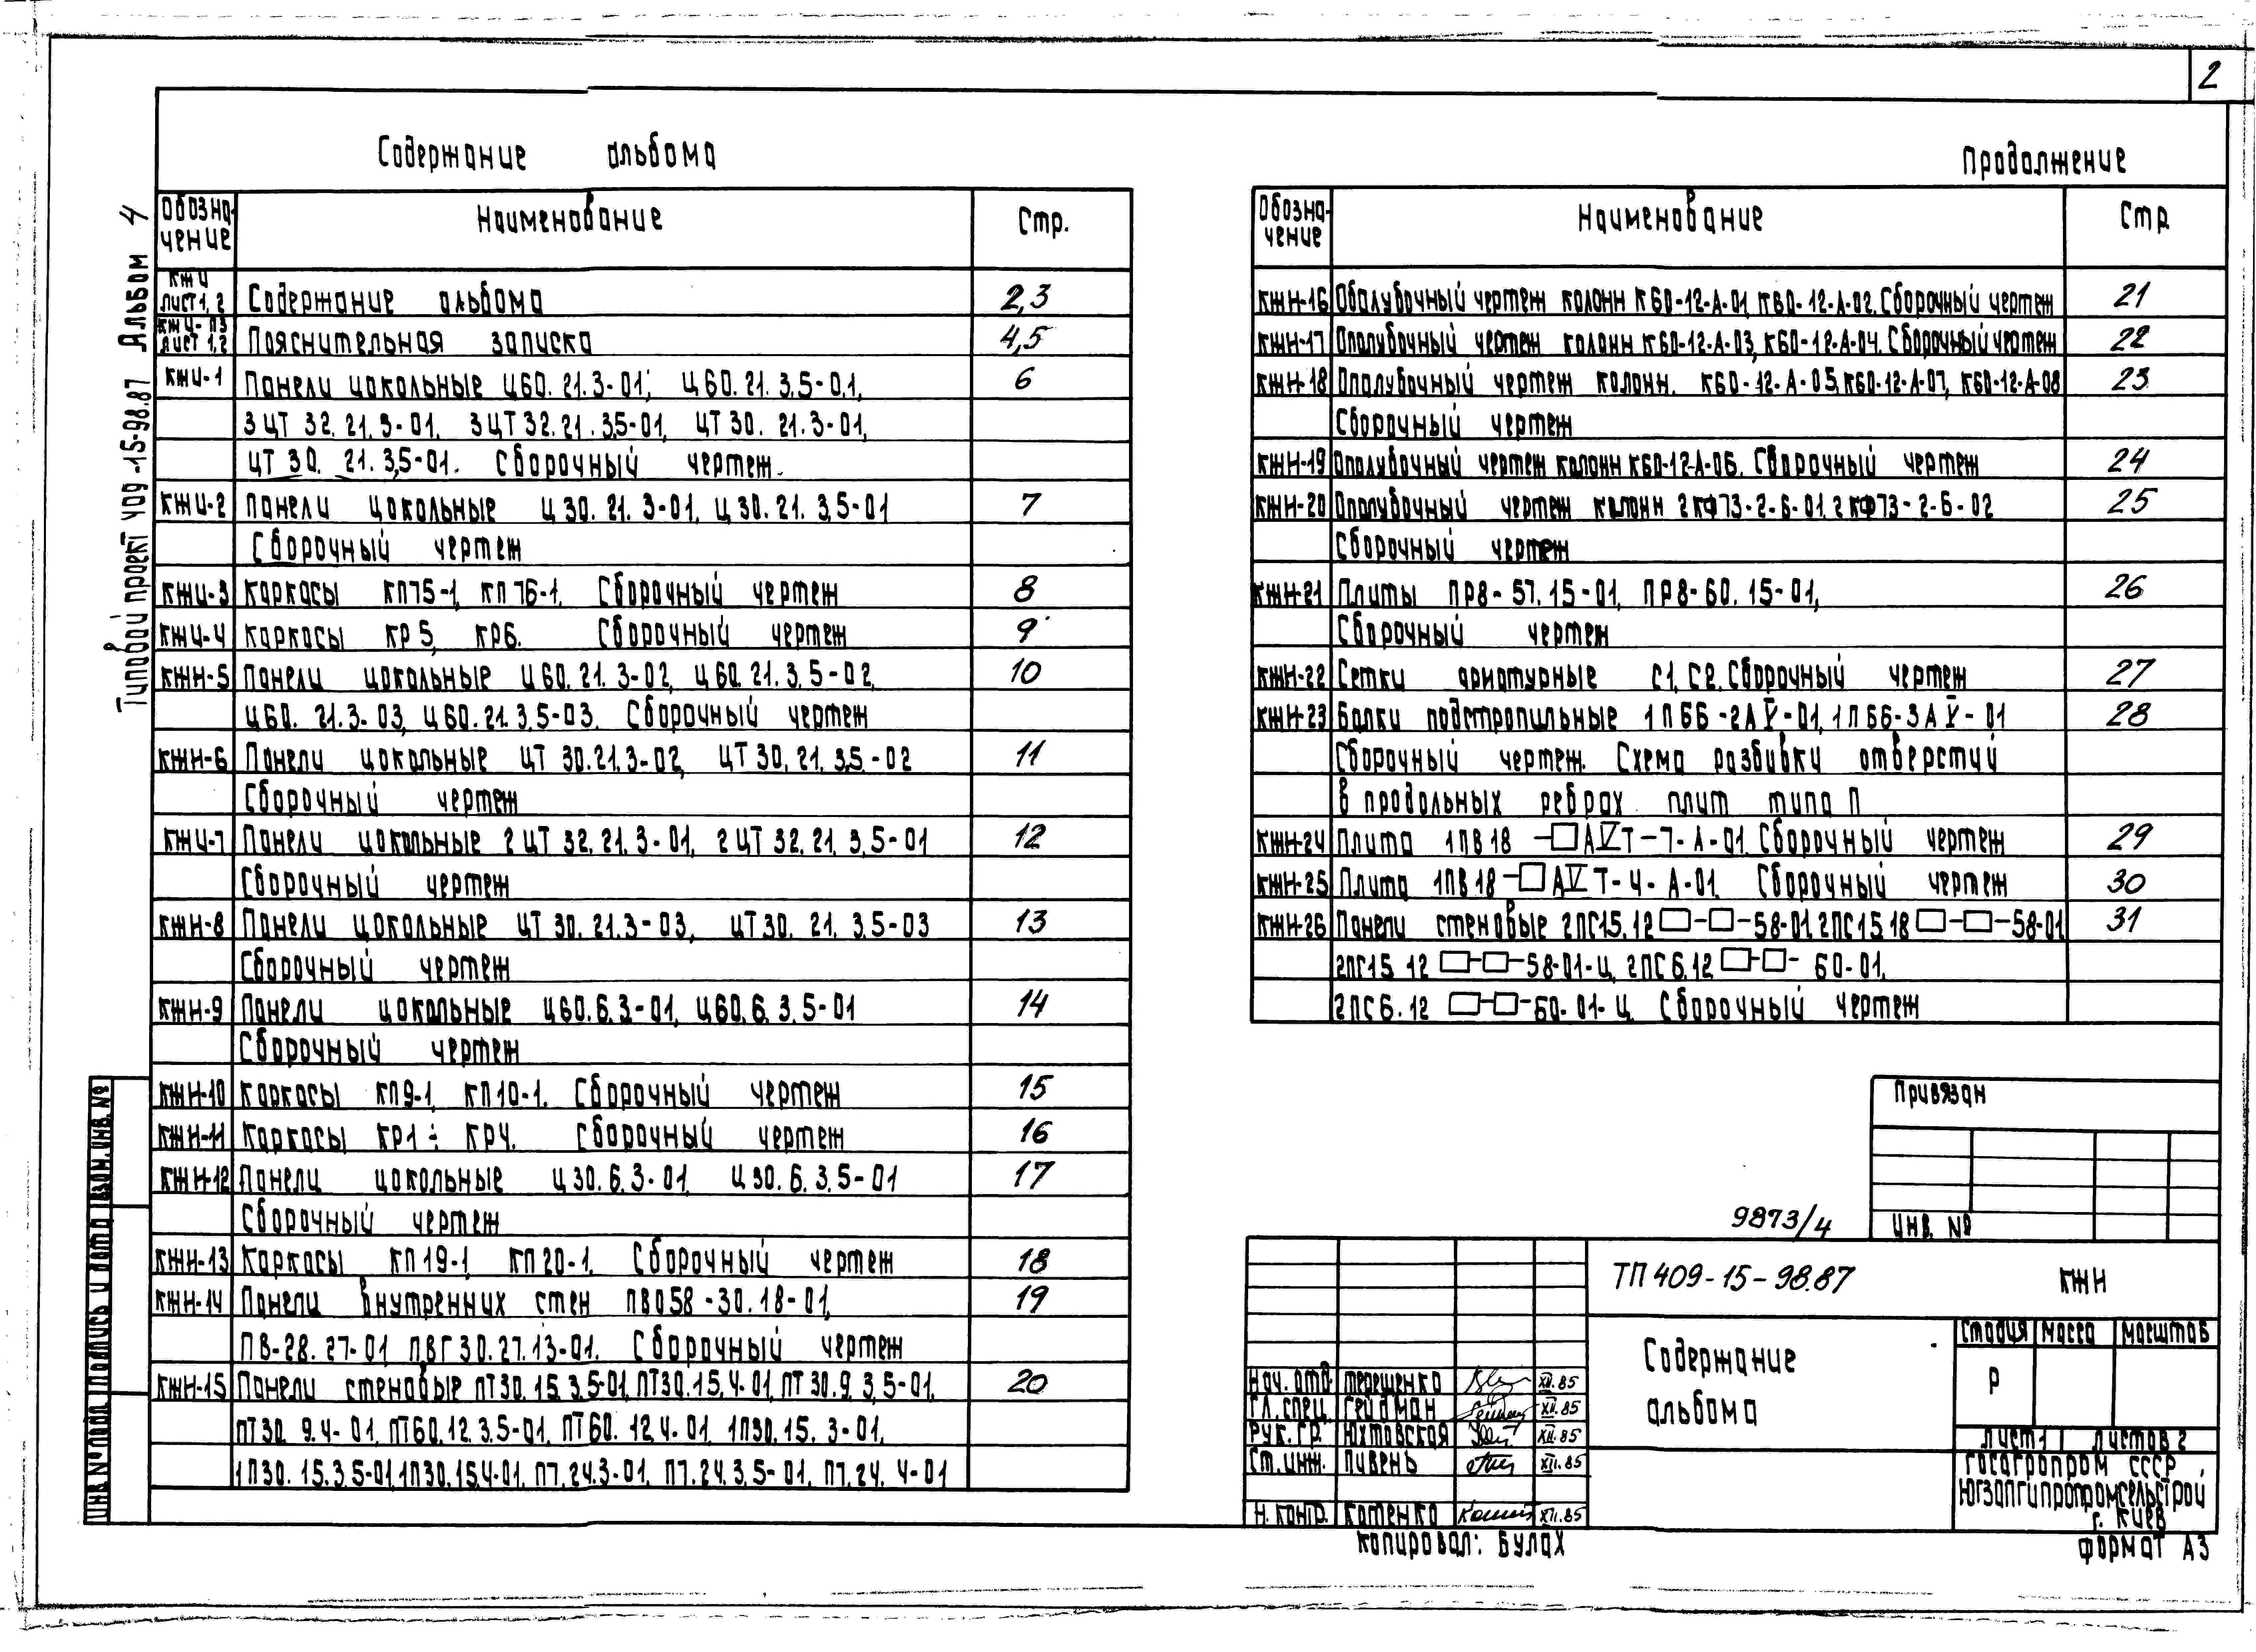 2
Содержание альбома
Обозна-
чение
Наименование
Стр.
КЖИ
лист 1, 2
Содержание альбома
2,3
КЖИ-ПЗ
лист 1,2
Пояснительная записка
4,5
КЖИ-1
Панели цокольные Ц60. 21. 3-01, Ц 60. 21. 3,5-0,1,
6
3 ЦТ 32. 21. 3-01. 3 ЦТ 32. 21. 3.5-01, ЦТ 30. 21. 3-01,
ЦТ 30. 21. 3,5-01. Сборочный чертеж.
КЖИ-2
Панели цокольные Ц 30. 21. 3-01, Ц 30. 21. 3,5-01
7
Сборочный чертеж
КЖИ-3
Каркасы КП75-1, КП 76-1. Сборочный чертеж
8
КЖИ-4
Каркасы КР5, КР6. Сборочный чертеж
9
КЖИ-5
Панели цокольные Ц 60. 21. 3-02, Ц 60. 21. 3. 5-02,
10
Ц 60. 21. 3-03, Ц 60. 21. 3,5-03. Сборочный чертеж
КЖИ-6
Панели цокольные ЦТ 30. 21. 3-02, ЦТ 30. 21. 3,5.-02
11
Сборочный чертеж
КЖИ-7
Панели цокольные 2 ЦТ 32. 21. 3-01, 2 ЦТ 32. 21. 3,5-01
12
Сборочный чертеж
КЖИ-8
Панели цокольные ЦТ 30. 21. 3-03, ЦТ 30. 21. 3.5-03
13
Сборочный чертеж
КЖИ-9
Панели цокольные Ц60. 6. 3-01, Ц60. 6. 3. 5-01
14
Сборочный чертеж
КЖИ-10
Каркасы КП9-1, КП10-1. Сборочный чертеж
15
КЖИ-11
Каркасы КР1 ÷ КР4. Сборочный чертеж
16
КЖИ-12
Панели цокольные Ц 30. 6. 3-01, Ц 30. 6. 3,5-01
17
Сборочный чертеж
КЖИ-13
Каркасы КП 19-1, КП 20-1. Сборочный чертеж
18
КЖИ-14
Панели внутренних стен ПВ058-30. 18-01,
19
ПВ-28. 27-01 ПВГ 30. 27. 13-01. Сборочный чертеж
КЖИ-15
Панели стеновые ПТ30. 15. 3,5-01, ПТ30. 15. 4-01, ПТ 30. 9. 3,5-01,
20
ПТ30. 9. 4-01, ПТ60. 12. 3. 5-01, ПТ60. 12. 4-01, 1П30. 15. 3-01,
1П30. 15. 3,5-01, 1П30. 15. 4-01, П7. 24. 3-01, П7. 24. 3. 5-01, П7. 24. 4-01
Продолжение
Обозна-
чение
Наименование
Стр
КЖИ-16
Опалубочный чертеж колонн К60-12-А-01, К60-12-А-02. Сборочный чертеж
21
КЖИ-17
Опалубочный чертеж колонн К60-12-А-03, К60-12-А-04. Сборочный чертеж
22
КЖИ-18
Опалубочный чертеж колонн. К60-12-А-05, К60-12-А-07, К60-12-А-08
23
Сборочный чертеж
КЖИ-19
Опалубочный чертеж колонн К60-12-А-06. Сборочный чертеж
24
КЖИ-20
Опалубочный чертеж колонн 2КФ73-2-6-01, 2КФ73-2-6-02
25
Сборочный чертеж
КЖИ-21
Плиты ПР8-57. 15-01, ПР8-60. 15-01,
26
Сборочный чертеж
КЖИ-22
Сетки арматурные С1, С2. Сборочный чертеж
27
КЖИ-23
Балки подстропильные 1ПБ6-2АV-01, 1ПБ6-3АV-01
28
Сборочный чертеж. Схема разбивки отверстий
в продольных ребрах плит типа П
КЖИ-24
Плита 1ПВ18 -□АVТ-7-А-01. Сборочный чертеж
29
КЖИ-25
Плита 1ПВ18-□АVТ-4-А-01. Сборочный чертеж
30
КЖИ-26
Панели стеновые 2ПС15. 12 □-□-58-01, 2ПС15. 18 □-□-58-01
31
2ПГ15. 12 □-□-58-01-Ц, 2ПС6. 12 □-□-60-01,
2ПС6. 12 □-□-60-01-Ц. Сборочный чертеж
Привязан
Инв. №
9873/4
ТП 409-15-98.87 КЖИ
Содержание
альбома
Стадия Масса Масштаб
Р
Лист 1 Листов 2
Госагропром СССР
Югзапгипропромсельстрой
г. Киев
Нач. отд. Терещенко XII.85
Гл. спец. Гейдман XII.85
Рук. гр. Юхтовская XII.85
Ст. инж. Пивень XII.85
Н. контр. Котенко XII.85
Копировал: Булах
Формат А3
Типовой проект 409-15-98.87 Альбом 4
Инв № подл. Подпись и дата Взам. инв. №